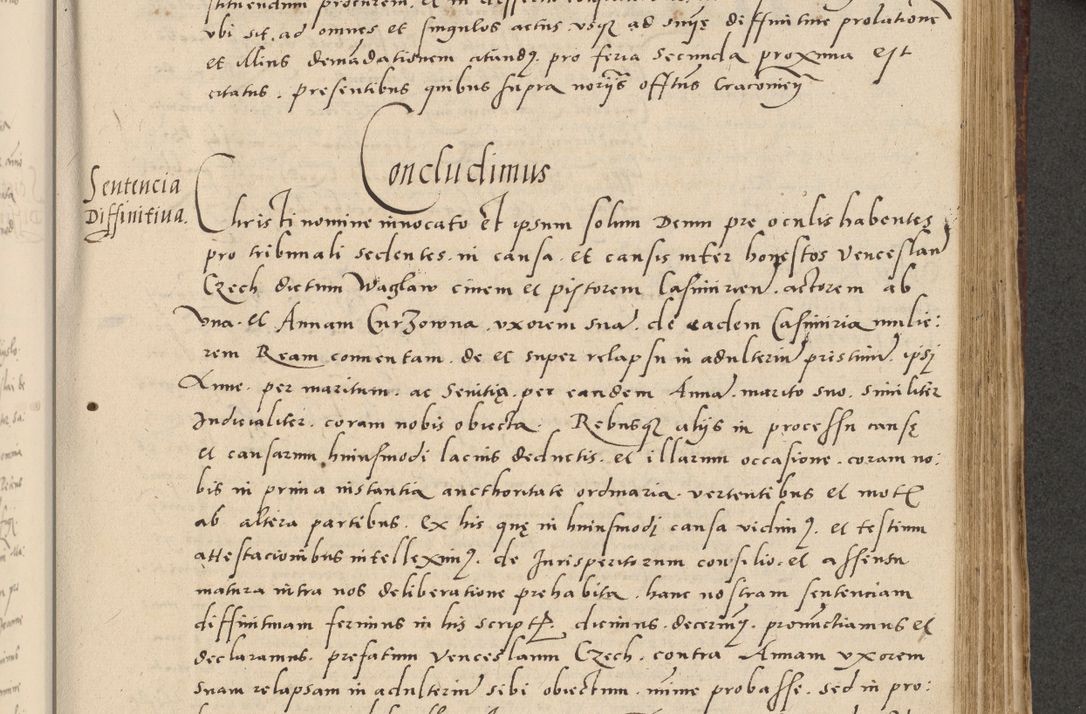 ubi sit, ad omnes et singulos actus usque ad snię deffinitive prolationem
et illius demandationem citandum. pro feria secunda proxima est
citatus. presentibus quibus supra noriis offitus Cracovien
Concludimus
Sentencia
Diffinitiva.
Christi nomine innocato et ipsum solum Deum pre oculis habentes
pro tribunali sedentes in causa et causis inter honestos Venceslau
Czech dictum Waglaw civem et pistorem Casimirien. actorem ab
una. et Annam Curzowna. uxorem sua. de eadem Casimiria mulie:
rem Ream conventam. de et super relapsu in adulterium pristinum. ipsi
Anne. per maritum. ac Sevitię per eandem Anna. marito suo. similiter
Judicialiter. coram nobis obiecta. Rebusque aliis in processu causę
et causarum huiusmodi lacius deductis. et illarum occasione. coram no:
bis in prima instantia aucthoritate ordinaria. vertentibus et mot
ab altera partibus. Ex his quę in huiusmodi causa vidimus. et testium
attestacionibus intelleximus. de Jurisperitorum consilio. et assensu
matura intra nos deliberatione prehabita. hanc nostram sentenciam
diffinitivam ferimus in his script. dicimus. decernimus. pronunctiamus et
declaramus. prefatum Venceslaum Czech. contra Annam uxorem
suam relapsam in adulterium sibi obiectum. minime probasse. sed in pro: